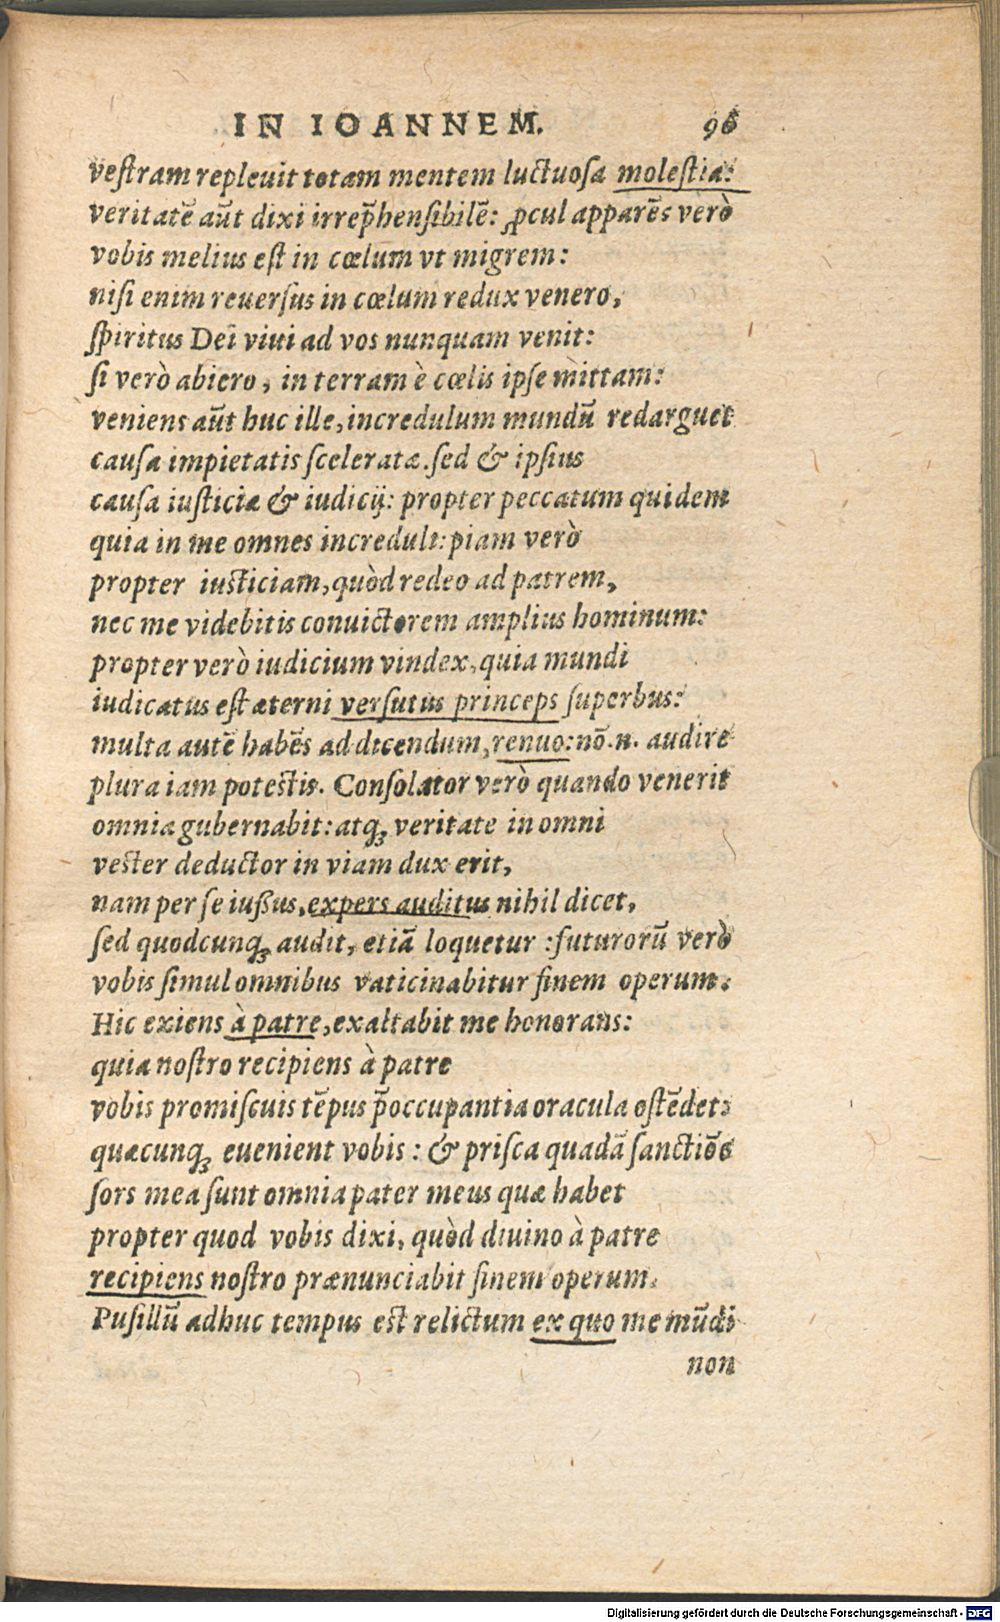 IN IOANNEM. 96
veſtram repleuit totam mentem luctuoſa moleſtia:
veritatē aūt dixi irrep̄henſibilē: ꝓcul apparēs verò
vobis melius eſt in cœlum vt migrem:
niſi enim reuerſus in cœlum redux venero,
ſpiritus Dei viui ad vos nunquam venit:
ſi verò abiero, in terram è cœlis ipſe mittam:
veniens aūt huc ille, incredulum mundū redarguet
cauſa impietatis ſceleratæ. ſed & ipſius
cauſa iuſticiæ & iudicij: propter peccatum quidem
quia in me omnes increduli: piam verò
propter iuſticiam, quòd redeo ad patrem,
nec me videbitis conuictorem amplius hominum:
propter verò iudicium vindex, quia mundi
iudicatus eſt æterni verſutus princeps ſuperbus:
multa autē habēs ad dicendum, renuo: nō. n. audire
plura iam poteſtis. Conſolator verò quando venerit
omnia gubernabit: atqꝫ veritate in omni
veſter deductor in viam dux erit,
nam per ſe iuſſus, expers auditus nihil dicet,
ſed quodcunqꝫ audit, etiā loquetur: futurorū verò
vobis ſimul omnibus vaticinabitur finem operum.
Hic exiens à patre, exaltabit me honorans:
quia noſtro recipiens à patre
vobis promiſcuis tēpus p̄occupantia oracula oſtēdet:
quæcunqꝫ euenient vobis: & priſca quadā ſanctiōe
ſors mea ſunt omnia pater meus quæ habet
propter quod vobis dixi, quòd diuino à patre
recipiens noſtro prænunciabit finem operum.
Puſillū adhuc tempus eſt relictum ex quo me mūdi
non
Digitalisierung gefördert durch die Deutsche Forschungsgemeinschaft - DFG